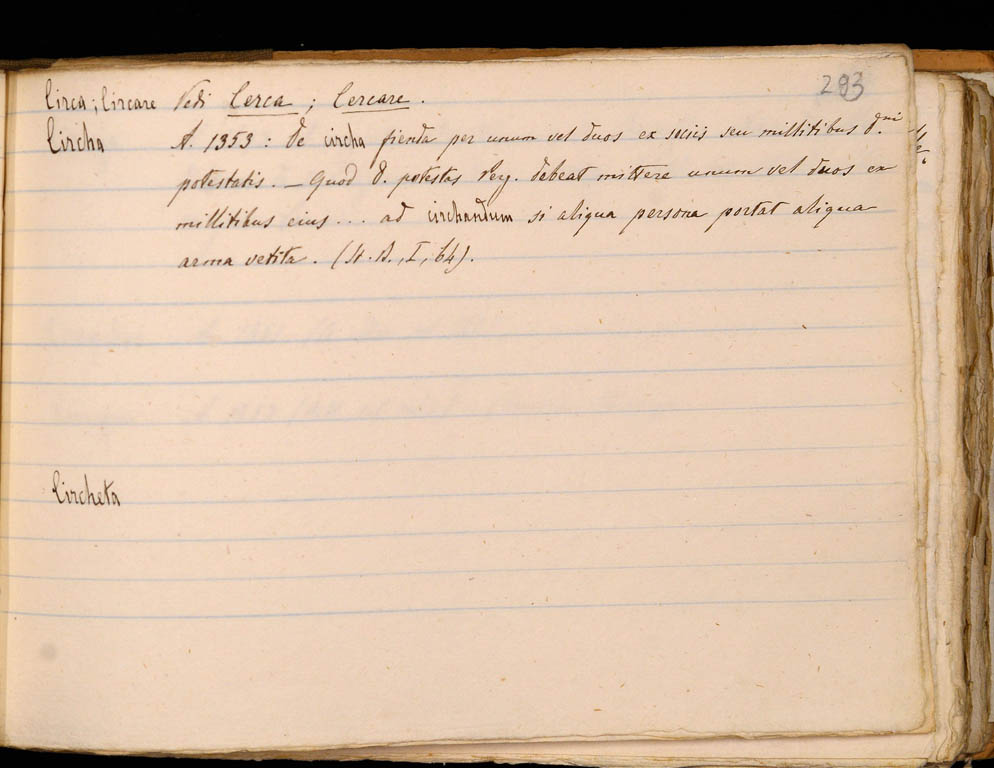 293
Circa; Circare Vedi Cerca; Cercare.
Circha A. 1353: De circha fienda per unum vel duos ex sociis seu millitibus d.ni
potestatis. — Quod d. potestas Reg. debeat mittere unum vel duos ex
millitibus eius... ad circhandum si aliqua persona portat aliqua
arma vetita. (St. A., I, 64).
Circheta